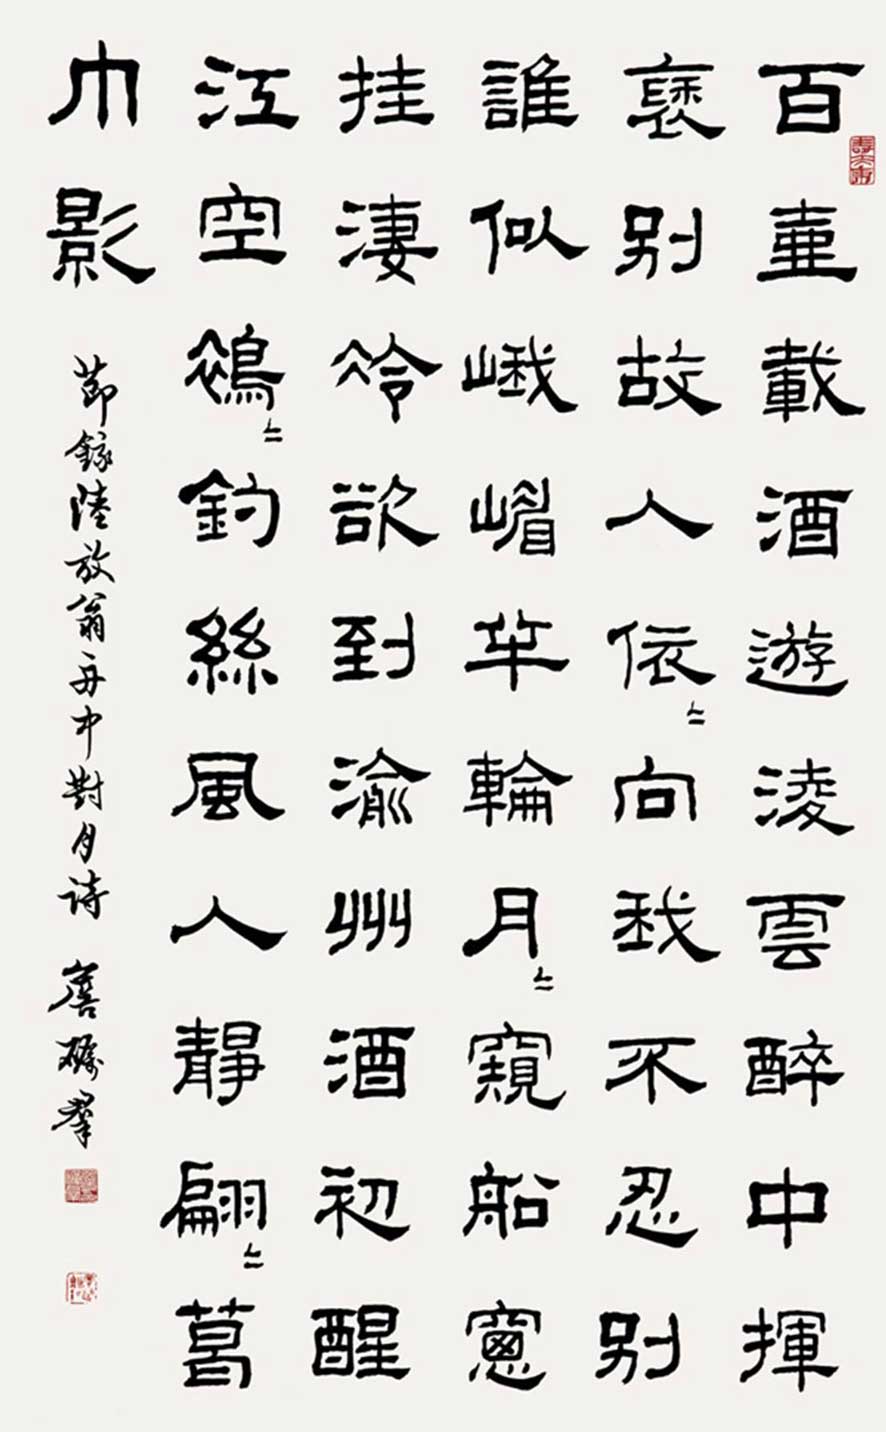 百壺載酒遊淩雲醉中揮
褎别故人依〻向我不忍别
誰似峨嵋半輪月〻窺船窻
挂淒冷欲到渝州酒初醒
江空裊〻釣絲風人靜翩〻葛
巾影
節錄陸放翁舟中對月诗